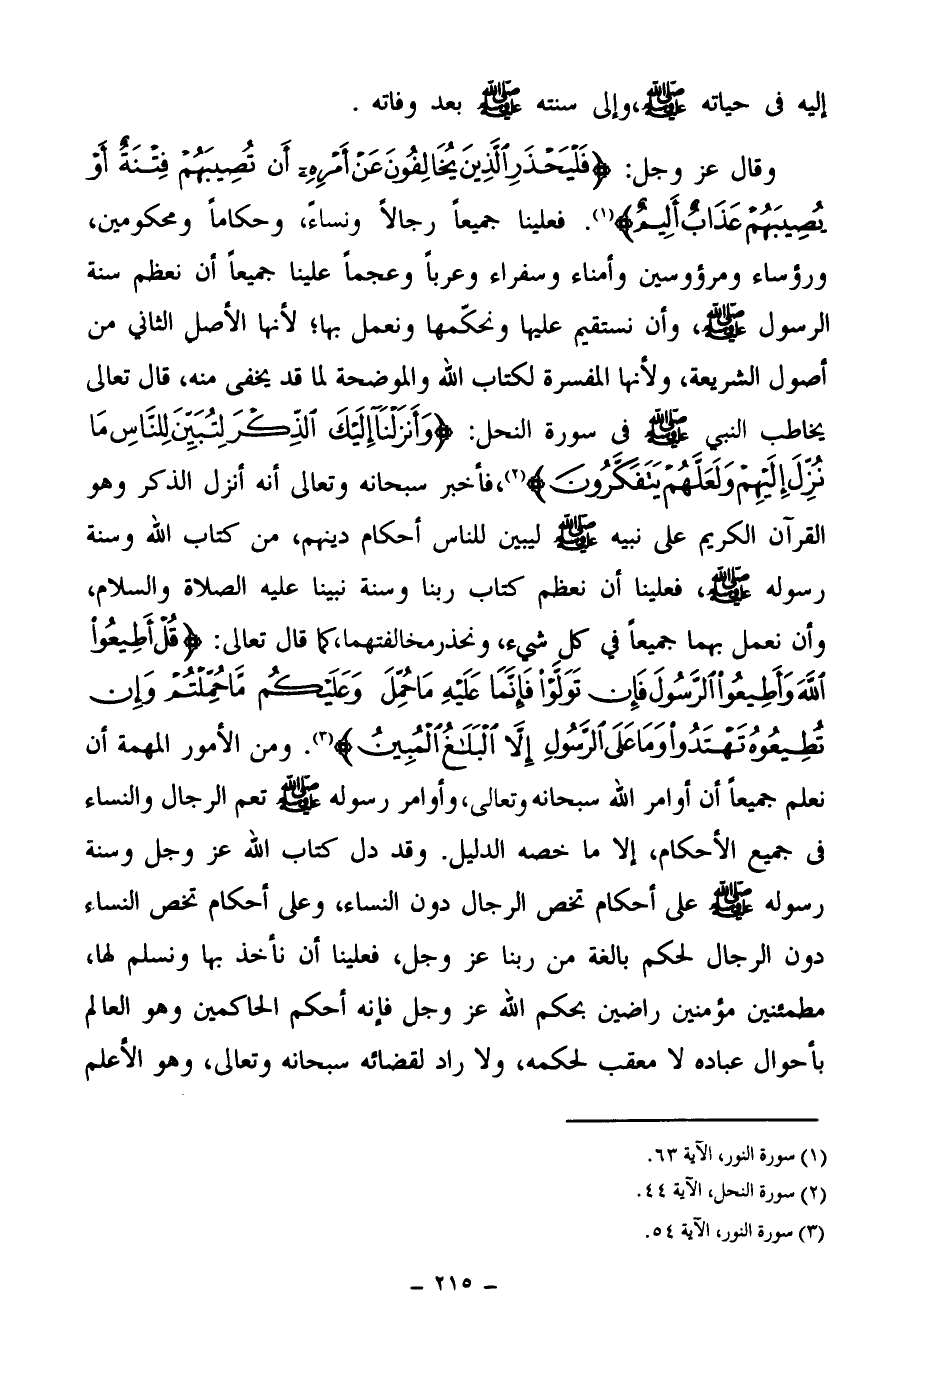 إليه في حياته ﷺ، وإلى سنته ﷺ بعد وفاته .
وقال عز وجل: ﴿فَلْيَحْذَرِ الَّذِينَ يُخَالِفُونَ عَنْ أَمْرِهِ أَن تُصِيبَهُمْ فِتْنَةٌ أَوْ
يُصِيبَهُمْ عَذَابٌ أَلِيمٌ﴾(١). فعلينا جميعاً رجالاً ونساءً، وحكاماً ومحكومين،
ورؤساء ومرؤوسين وأمناء وسفراء وعرباً وعجماً علينا جميعاً أن نعظم سنة
الرسول ﷺ، وأن نستقيم عليها ونحكّمها ونعمل بها؛ لأنها الأصل الثاني من
أصول الشريعة، ولأنها المفسرة لكتاب الله والموضحة لما قد يخفى منه، قال تعالى
يخاطب النبي ﷺ في سورة النحل: ﴿وَأَنزَلْنَا إِلَيْكَ الذِّكْرَ لِتُبَيِّنَ لِلنَّاسِ مَا
نُزِّلَ إِلَيْهِمْ وَلَعَلَّهُمْ يَتَفَكَّرُونَ﴾(٢)، فأخبر سبحانه وتعالى أنه أنزل الذكر وهو
القرآن الكريم على نبيه ﷺ ليبين للناس أحكام دينهم، من كتاب الله وسنة
رسوله ﷺ، فعلينا أن نعظم كتاب ربنا وسنة نبينا عليه الصلاة والسلام،
وأن نعمل بهما جميعاً في كل شيء، ونحذر مخالفتهما، كما قال تعالى: ﴿قُلْ أَطِيعُوا
اللَّهَ وَأَطِيعُوا الرَّسُولَ فَإِن تَوَلَّوْا فَإِنَّمَا عَلَيْهِ مَا حُمِّلَ وَعَلَيْكُم مَّا حُمِّلْتُمْ وَإِن
تُطِيعُوهُ تَهْتَدُوا وَمَا عَلَى الرَّسُولِ إِلَّا الْبَلَاغُ الْمُبِينُ﴾(٣). ومن الأمور المهمة أن
نعلم جميعاً أن أوامر الله سبحانه وتعالى، وأوامر رسوله ﷺ تعم الرجال والنساء
في جميع الأحكام، إلا ما خصه الدليل. وقد دل كتاب الله عز وجل وسنة
رسوله ﷺ على أحكام تخص الرجال دون النساء، وعلى أحكام تخص النساء
دون الرجال لحكم بالغة من ربنا عز وجل، فعلينا أن نأخذ بها ونسلم لها،
مطمئنين مؤمنين راضين بحكم الله عز وجل فإنه أحكم الحاكمين وهو العالم
بأحوال عباده لا معقب لحكمه، ولا راد لقضائه سبحانه وتعالى، وهو الأعلم
(١) سورة النور، الآية ٦٣.
(٢) سورة النحل، الآية ٤٤.
(٣) سورة النور، الآية ٥٤.
– ٢١٥ –